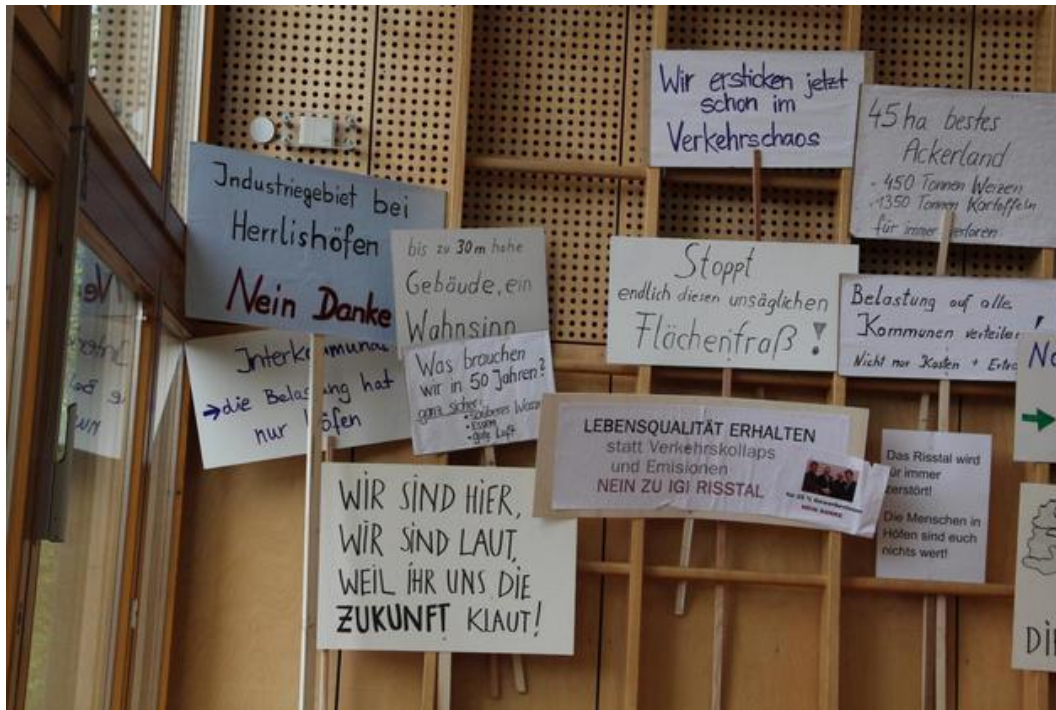 Wir ersticken jetzt
schon im
Verkehrschaos
45 ha bestes
Ackerland
- 450 Tonnen Weizen
- 1350 Tonnen Kartoffeln
für immer verloren
Industriegebiet bei
Herrlishöfen
Nein Danke
bis zu 30m hohe
Gebäude, ein
Wahnsinn
Stoppt
endlich diesen unsäglichen
Flächenfraß!
Belastung auf alle
Kommunen verteilen!
Nicht nur Kosten +
→die Belastung hat
nur Höfen
Was brauchen
wir in 50 Jahren?
ganz sicher:
• Sauberes
• Essen
• gute Luft
LEBENSQUALITÄT ERHALTEN
statt Verkehrskollaps
und Emissionen
NEIN ZU IGI RISSTAL
NEIN DANKE
Das Risstal wird
für immer
zerstört!
Die Menschen in
Höfen sind euch
nichts wert!
WIR SIND HIER,
WIR SIND LAUT,
WEIL IHR UNS DIE
ZUKUNFT KLAUT!